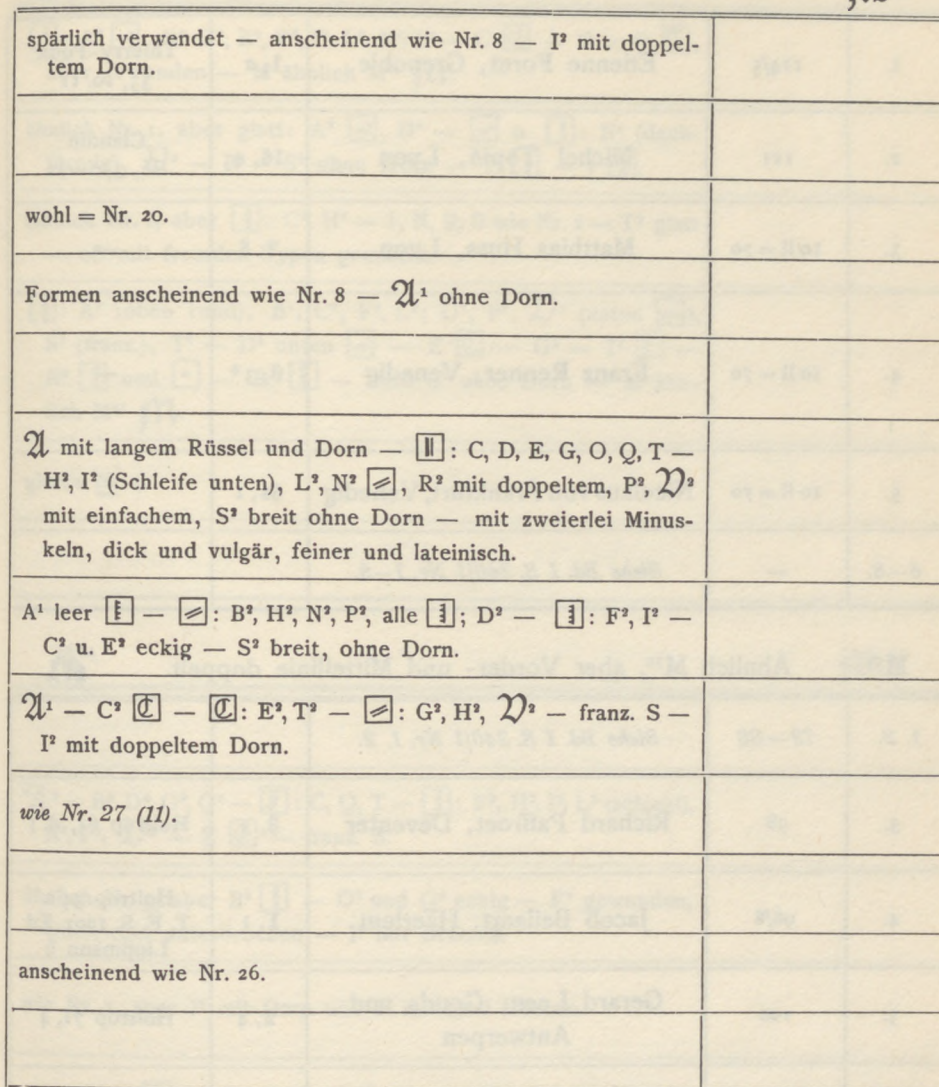 spärlich verwendet — anscheinend wie Nr. 8 — I² mit doppel-
tem Dorn.
wohl = Nr. 20.
Formen anscheinend wie Nr. 8 — 𝔄¹ ohne Dorn.
𝔄 mit langem Rüssel und Dorn — : C, D, E, G, O, Q, T —
H², I² (Schleife unten), L², N² , R² mit doppeltem, P², 𝔙²
mit einfachem, S² breit ohne Dorn — mit zweierlei Minus-
keln, dick und vulgär, feiner und lateinisch.
A¹ leer — : B², H², N², P², alle ; D² — : F², I² —
C² u. E² eckig — S² breit, ohne Dorn.
𝔄¹ — C² ℭ — ℭ: E², T² — : G², H², 𝔙² — franz. S —
I² mit doppeltem Dorn.
wie Nr. 27 (11).
anscheinend wie Nr. 26.